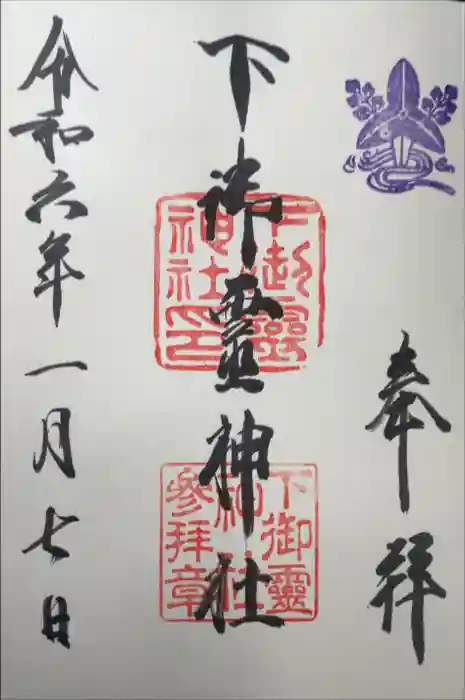 奉拝
下御靈神社
下御靈神社印
下御靈神社參拜章
令和六年一月七日